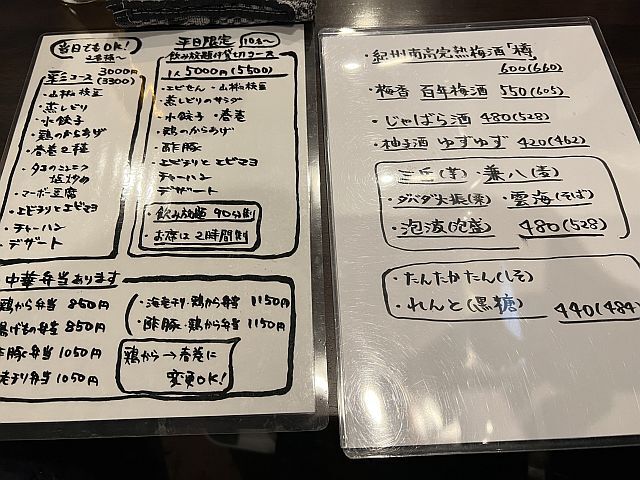 当日でもOK!
2名様〜
3000円
(3300)
コース
・蒸しどり
・水餃子
・鶏のからあげ
・春巻2種
・マーボ豆腐
・エビチリとエビマヨ
・チャーハン
・デザート
平日限定 10名〜
飲み放題付貸切コース
1人 5000円(5500)
・蒸しどりのサラダ
・水餃子 ・春巻
・鶏のからあげ
・酢豚
・エビチリと エビマヨ
・チャーハン
・デザート
・飲み放題 90分制
・お席は2時間制
中華弁当あります
鶏から弁当 850円
揚げもの弁当 850円
酢豚弁当 1050円
弁当 1050円
・海老チリ・鶏から弁当 1150円
・酢豚・鶏から弁当 1150円
鶏から→春巻に
変更OK!
・紀州南高完熟梅酒「樽」
600(660)
・梅香 百年梅酒 550(605)
・じゃばら酒 480(528)
・柚子酒 ゆずゆず 420(462)
・三岳(芋)・兼八(麦)
・ダバダ火振(栗) ・雲海(そば)
・泡波(泡盛) 480(528)
・たんたかたん(しそ)
・れんと(黒糖) 440(484)